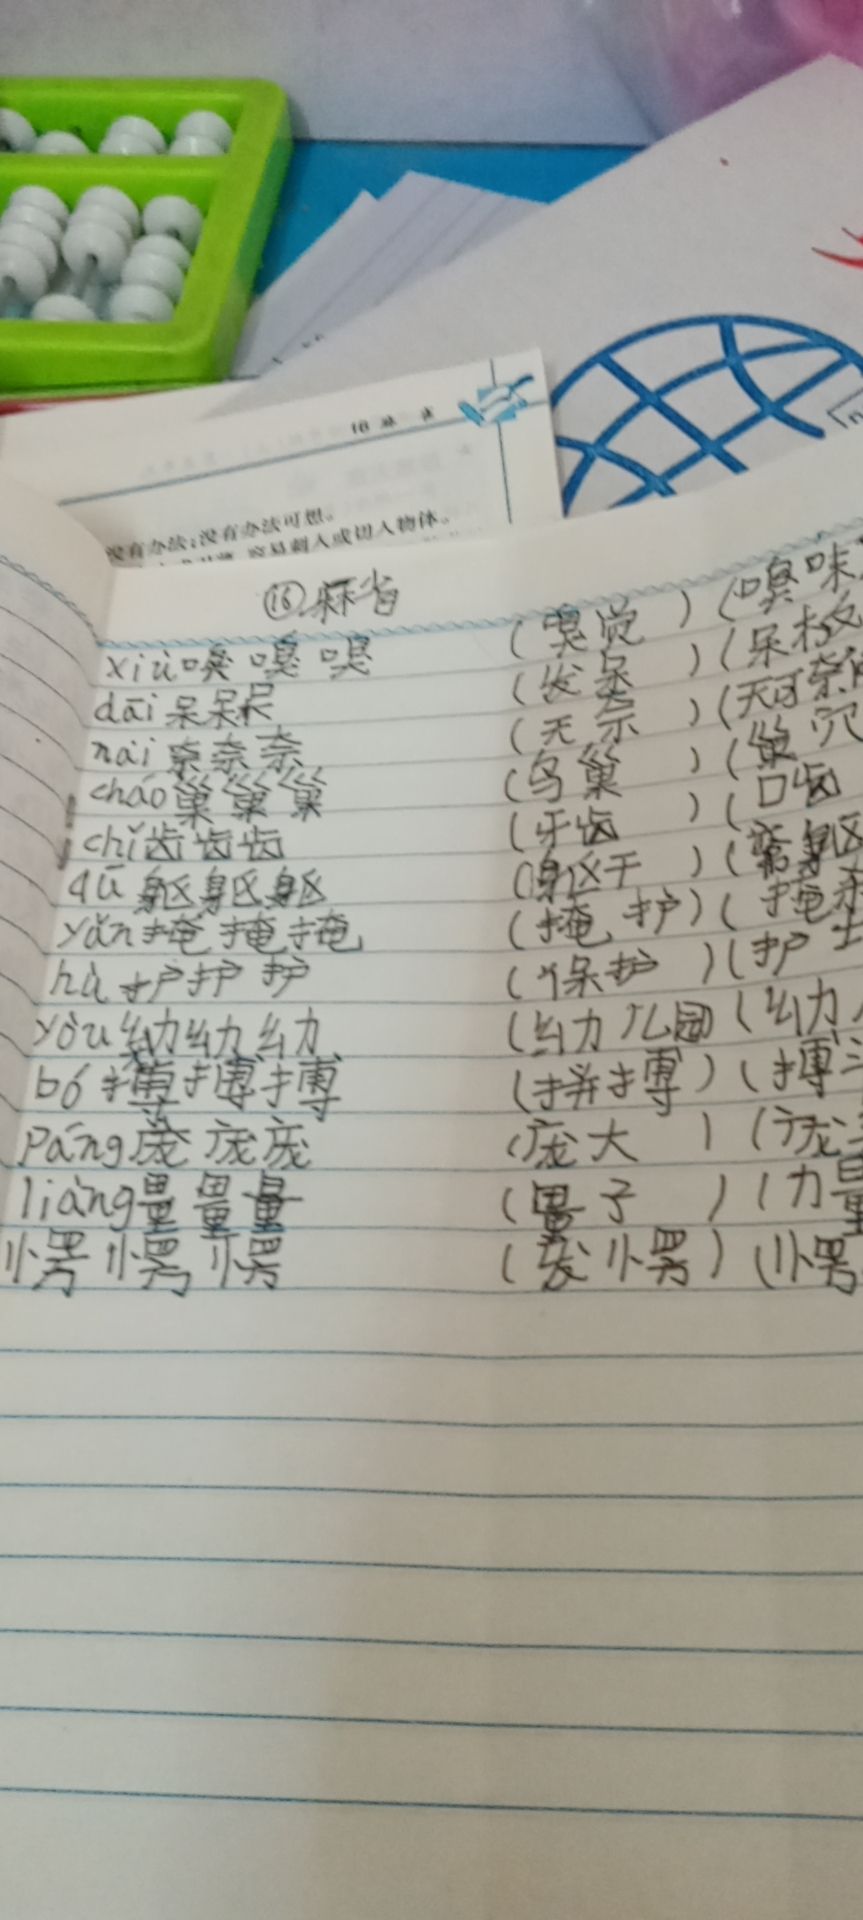 16 麻雀
没有办法;没有办法可想。
容易刺入或切入物体。
⑯麻雀
xiù 嗅 嗅 嗅 (嗅觉) (嗅味
dāi 呆呆呆 (发呆) (呆板
nài 奈奈奈 (无奈) (无可奈何
cháo 巢巢巢 (鸟巢) (巢穴
chǐ 齿齿齿 (牙齿) (口齿
qū 躯躯躯 (身躯干) (
yǎn 掩掩掩 (掩护) (掩
hù 护护护 (保护) (护士
yòu 幼幼幼 (幼儿园 (幼儿
bó 搏搏搏 (拼搏) (搏斗
páng 庞庞庞 (庞大) (庞
liàng 量量量 (量子) (力量
愣愣愣 (发愣) (愣